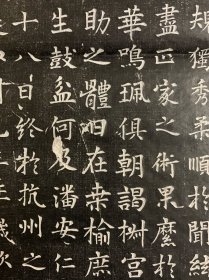 規獨秀柔順於閨緒
盡正家之術果縻於
華鳴珮俱朝謁樹宮
助之體旧在桒榆庶
生鼓盆何及潘安仁
十八日終於杭州之